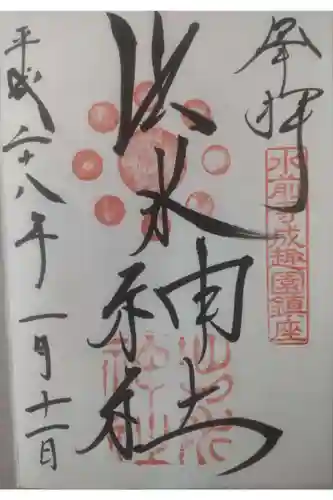 奉拝
水前寺成趣園鎮座
出水神社
出水神社
平成二十八年一月十一日